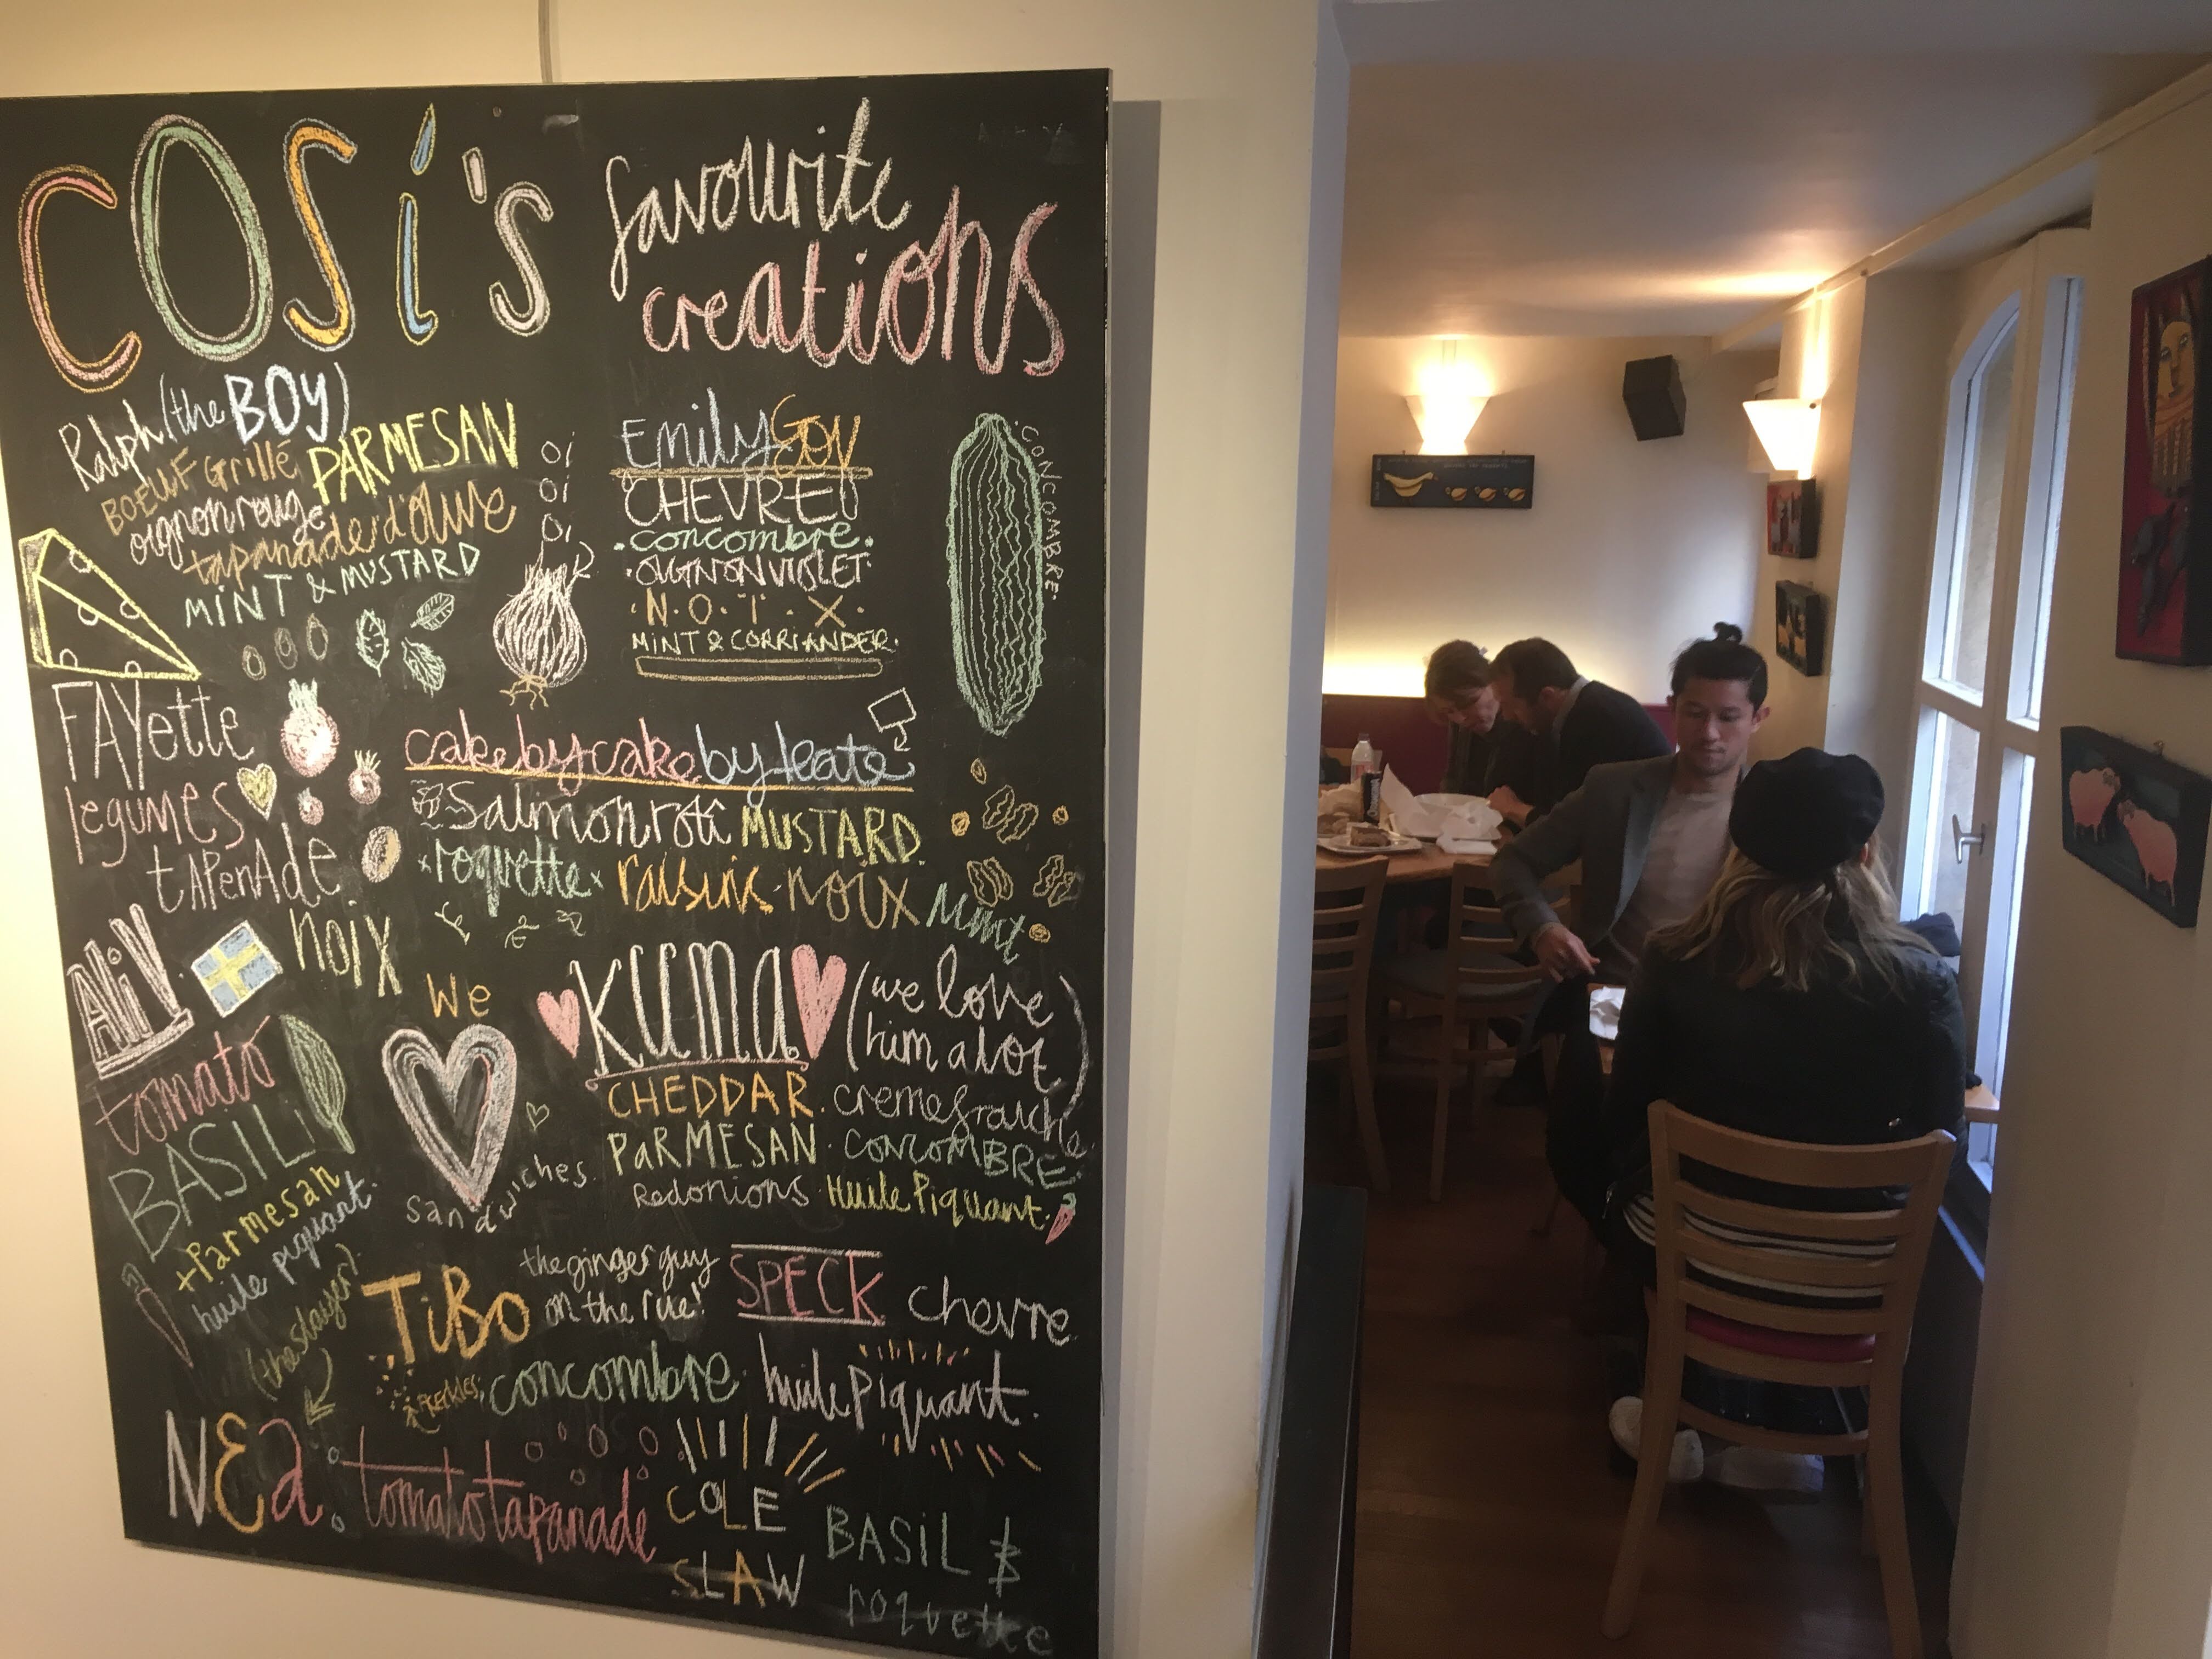 COSi's
favourite
creations
Ralph (the BOY)
BOEUF Grillé PARMESAN
oignon rouge
tapanade d'olive
MINT & MUSTARD
FAYette
legumes
tAPenAde
noix
AliN
tomato
BASIL
+Parmesan
huile piquant.
(the slayer)
Emily Gov
CHEVRE
.concombre.
.OIGNON VIOLET.
.N.O.I.X.
MINT & CORRIANDER.
CONCOMBRE.
cake by cake by kate
Salmon roti MUSTARD.
roquette raisins. noux Mint
We
sandwiches.
KUMA (we love
him alot)
CHEDDAR. creme fraiche
PARMESAN. CONCOMBRE.
Red onions. Huile Piquant.
TiBo
the ginger guy
on the rue!
SPECK chevre
freckles
concombre. huile piquant.
NEa: tomato tapanade
COLE
SLAW
BASIL &
roquette